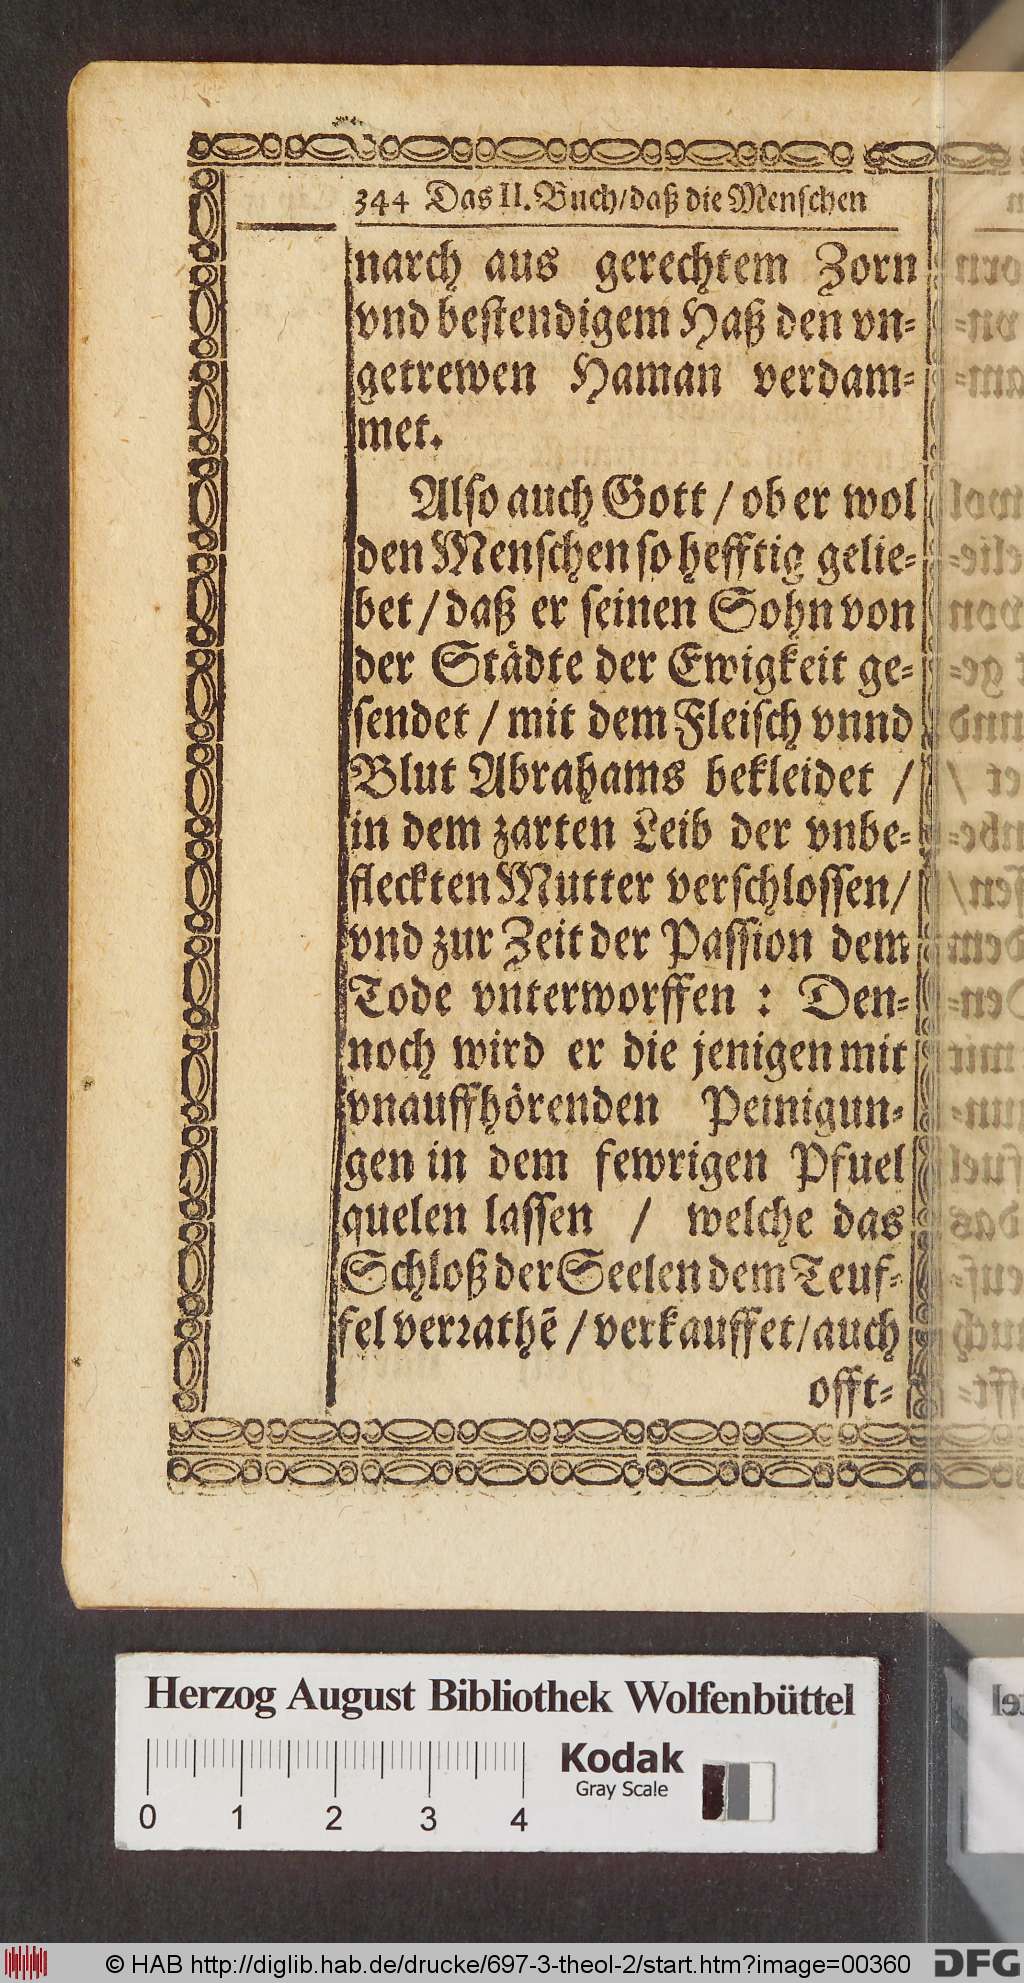 344 Das II. Buch/daß die Menschen
narch aus gerechtem Zorn
vnd bestendigem Haß den vn-
getrewen Haman verdam-
met.
Also auch Gott / ob er wol
den Menschen so hefftig gelie-
bet / daß er seinen Sohn von
der Städte der Ewigkeit ge-
sendet / mit dem Fleisch vnnd
Blut Abrahams bekleidet /
in dem zarten Leib der vnbe-
fleckten Mutter verschlossen/
vnd zur Zeit der Passion dem
Tode vnterworffen : Den-
noch wird er die jenigen mit
vnauffhörenden Peinigun-
gen in dem fewrigen Pfuel
quelen lassen / welche das
Schloß der Seelen dem Teuf-
fel verrathē / verkauffet/auch
offt-
Herzog August Bibliothek Wolfenbüttel
Kodak
Gray Scale
0 1 2 3 4
© HAB http://diglib.hab.de/drucke/697-3-theol-2/start.htm?image=00360
DFG